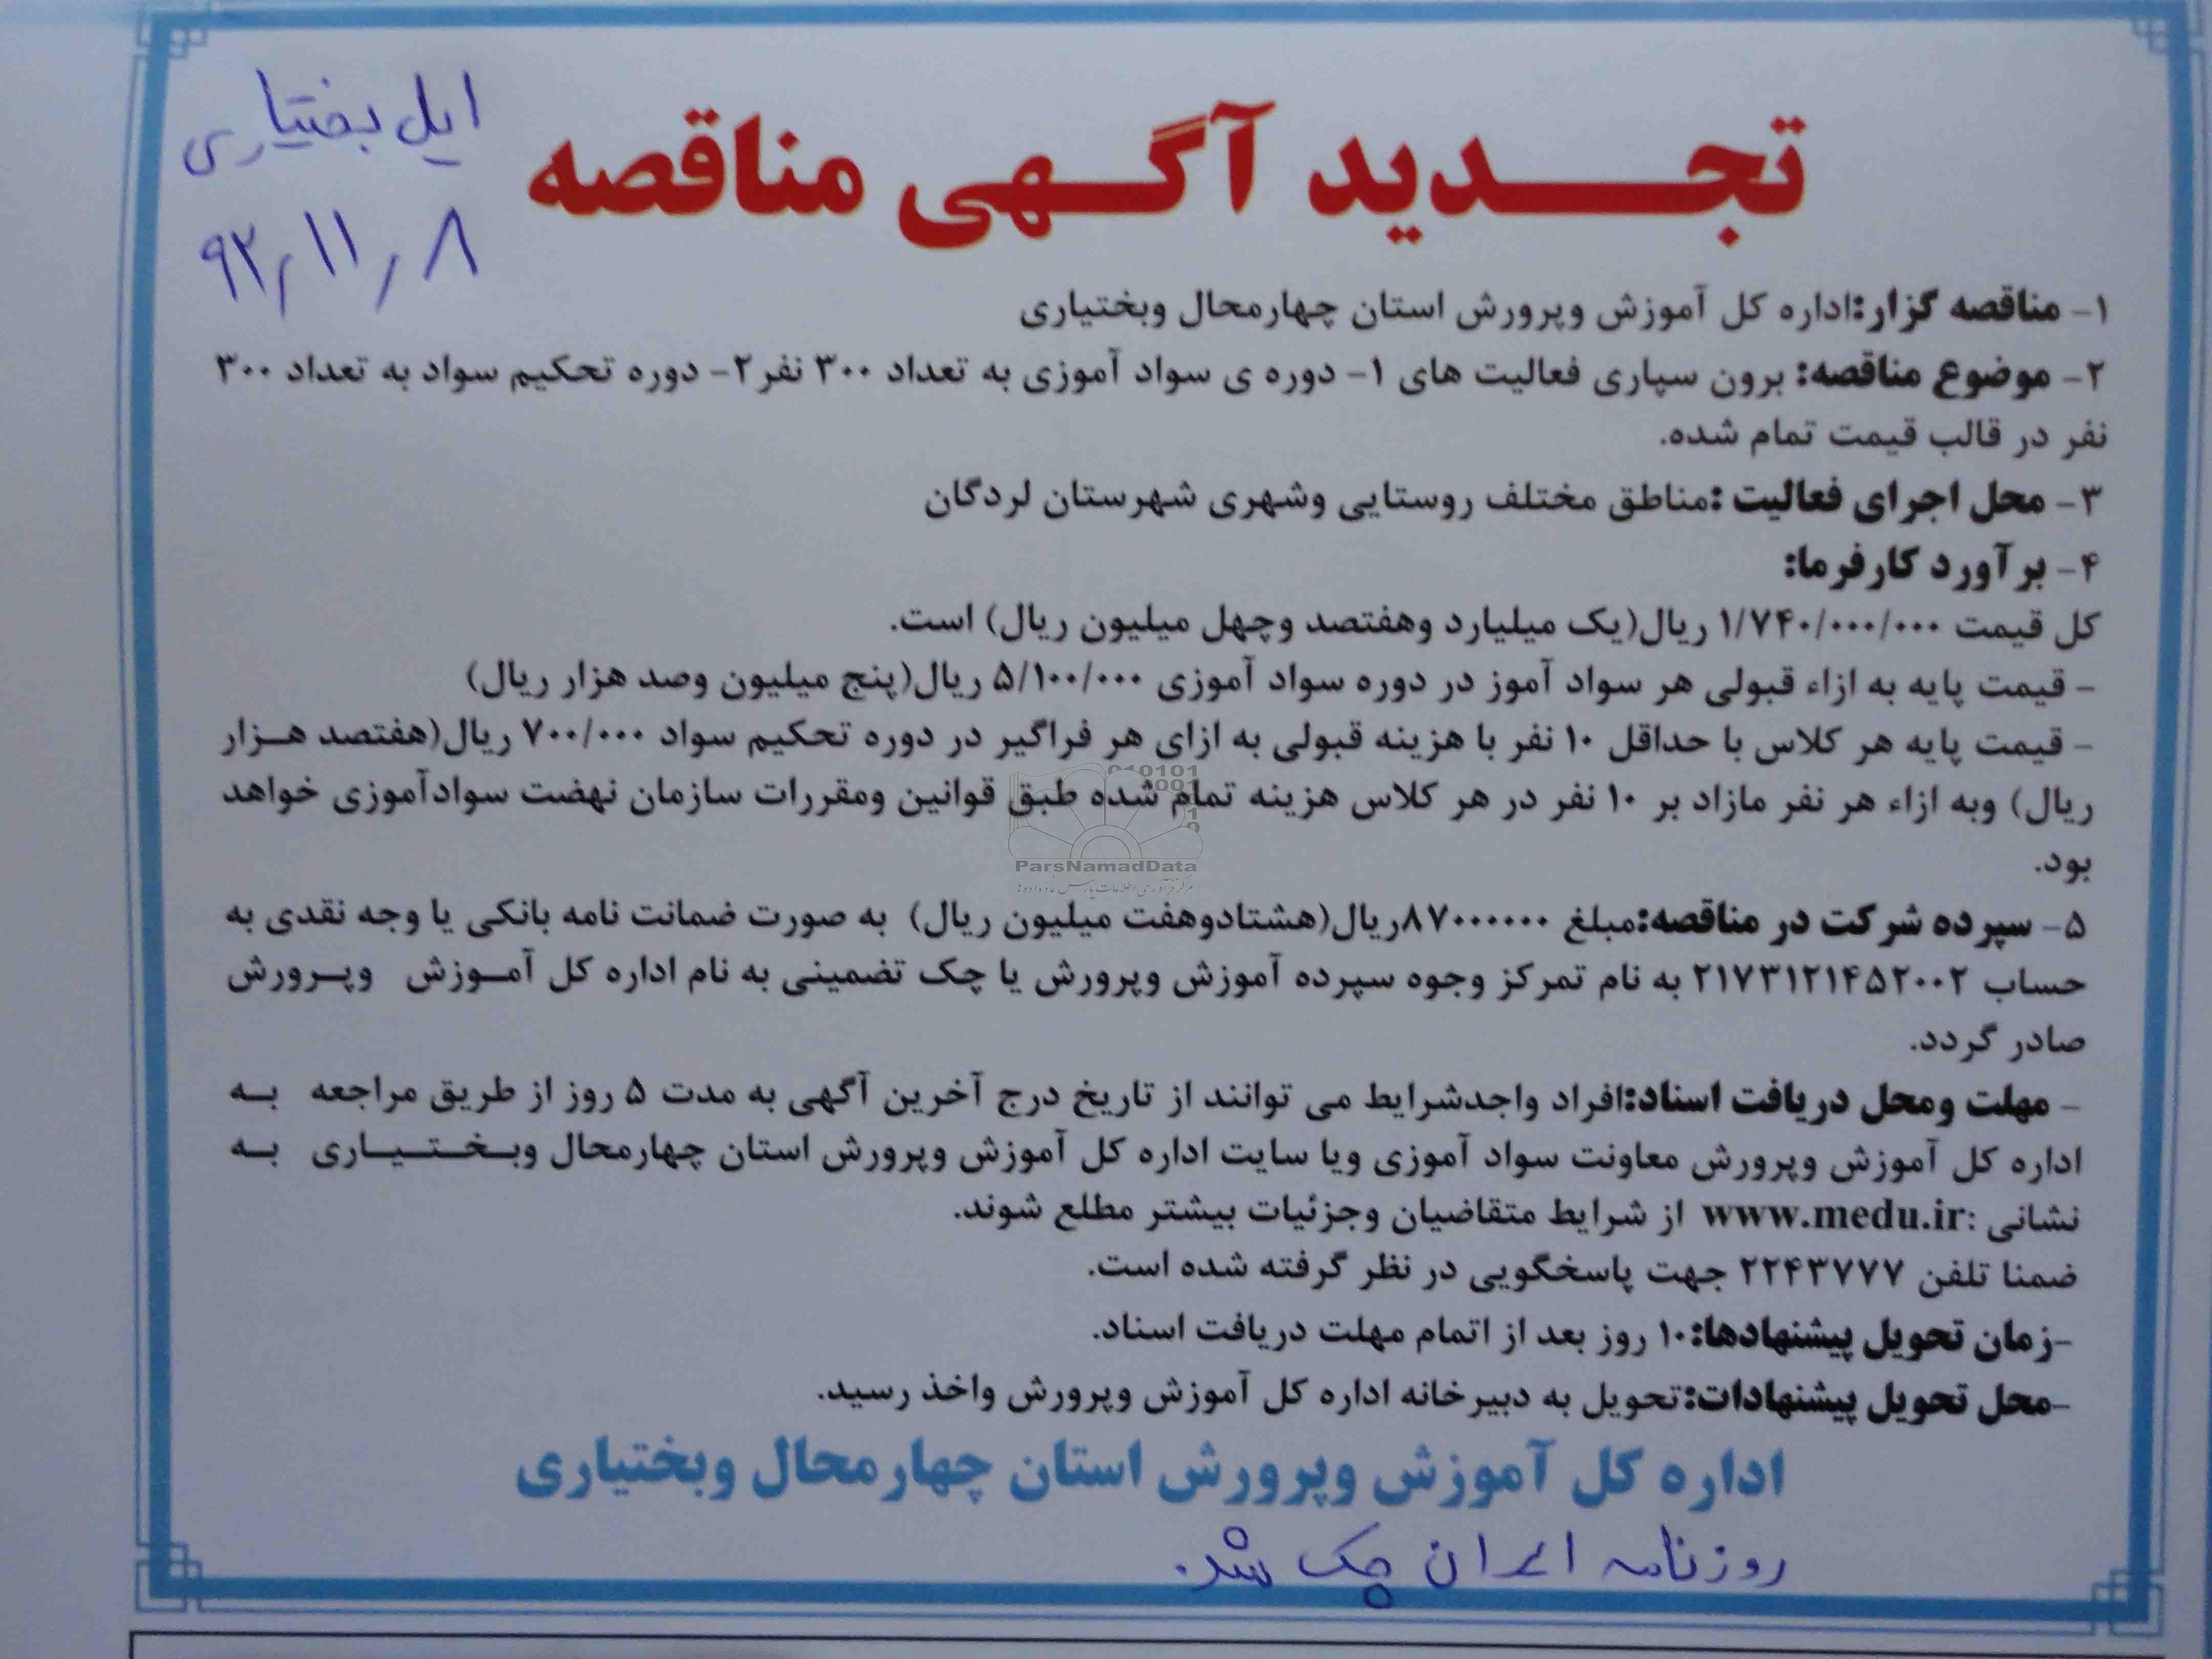 ایل بختیاری
۹۲٫۱۱٫۸
تجدید آگهی مناقصه
۱- مناقصه گزار:اداره کل آموزش وپرورش استان چهارمحال وبختیاری
۲- موضوع مناقصه: برون سپاری فعالیت های ۱- دوره ی سواد آموزی به تعداد ۳۰۰ نفر۲- دوره تحکیم سواد به تعداد ۳۰۰
نفر در قالب قیمت تمام شده.
۳- محل اجرای فعالیت :مناطق مختلف روستایی وشهری شهرستان لردگان
۴- برآورد کارفرما:
کل قیمت ۱/۷۴۰/۰۰۰/۰۰۰ ریال(یک میلیارد وهفتصد وچهل میلیون ریال) است.
- قیمت پایه به ازاء قبولی هر سواد آموز در دوره سواد آموزی ۵/۱۰۰/۰۰۰ ریال(پنج میلیون وصد هزار ریال)
- قیمت پایه هر کلاس با حداقل ۱۰ نفر با هزینه قبولی به ازای هر فراگیر در دوره تحکیم سواد ۷۰۰/۰۰۰ ریال(هفتصد هزار
ریال) وبه ازاء هر نفر مازاد بر ۱۰ نفر در هر کلاس هزینه تمام شده طبق قوانین ومقررات سازمان نهضت سوادآموزی خواهد
بود.
ParsNamadData
مرکز فرآوری اطلاعات پارس نماد داده ها
۵- سپرده شرکت در مناقصه:مبلغ ۸۷۰۰۰۰۰۰ریال(هشتادوهفت میلیون ریال) به صورت ضمانت نامه بانکی یا وجه نقدی به
حساب ۲۱۷۳۱۲۱۴۵۲۰۰۲ به نام تمرکز وجوه سپرده آموزش وپرورش یا چک تضمینی به نام اداره کل آموزش وپرورش
صادر گردد.
- مهلت ومحل دریافت اسناد:افراد واجدشرایط می توانند از تاریخ درج آخرین آگهی به مدت ۵ روز از طریق مراجعه به
اداره کل آموزش وپرورش معاونت سواد آموزی ویا سایت اداره کل آموزش وپرورش استان چهارمحال وبختیاری به
نشانی :www.medu.ir از شرایط متقاضیان وجزئیات بیشتر مطلع شوند.
ضمنا تلفن ۲۲۴۳۷۷۷ جهت پاسخگویی در نظر گرفته شده است.
-زمان تحویل پیشنهادها:۱۰ روز بعد از اتمام مهلت دریافت اسناد.
-محل تحویل پیشنهادات:تحویل به دبیرخانه اداره کل آموزش وپرورش واخذ رسید.
اداره کل آموزش وپرورش استان چهارمحال وبختیاری
روزنامه ایران چک شد.